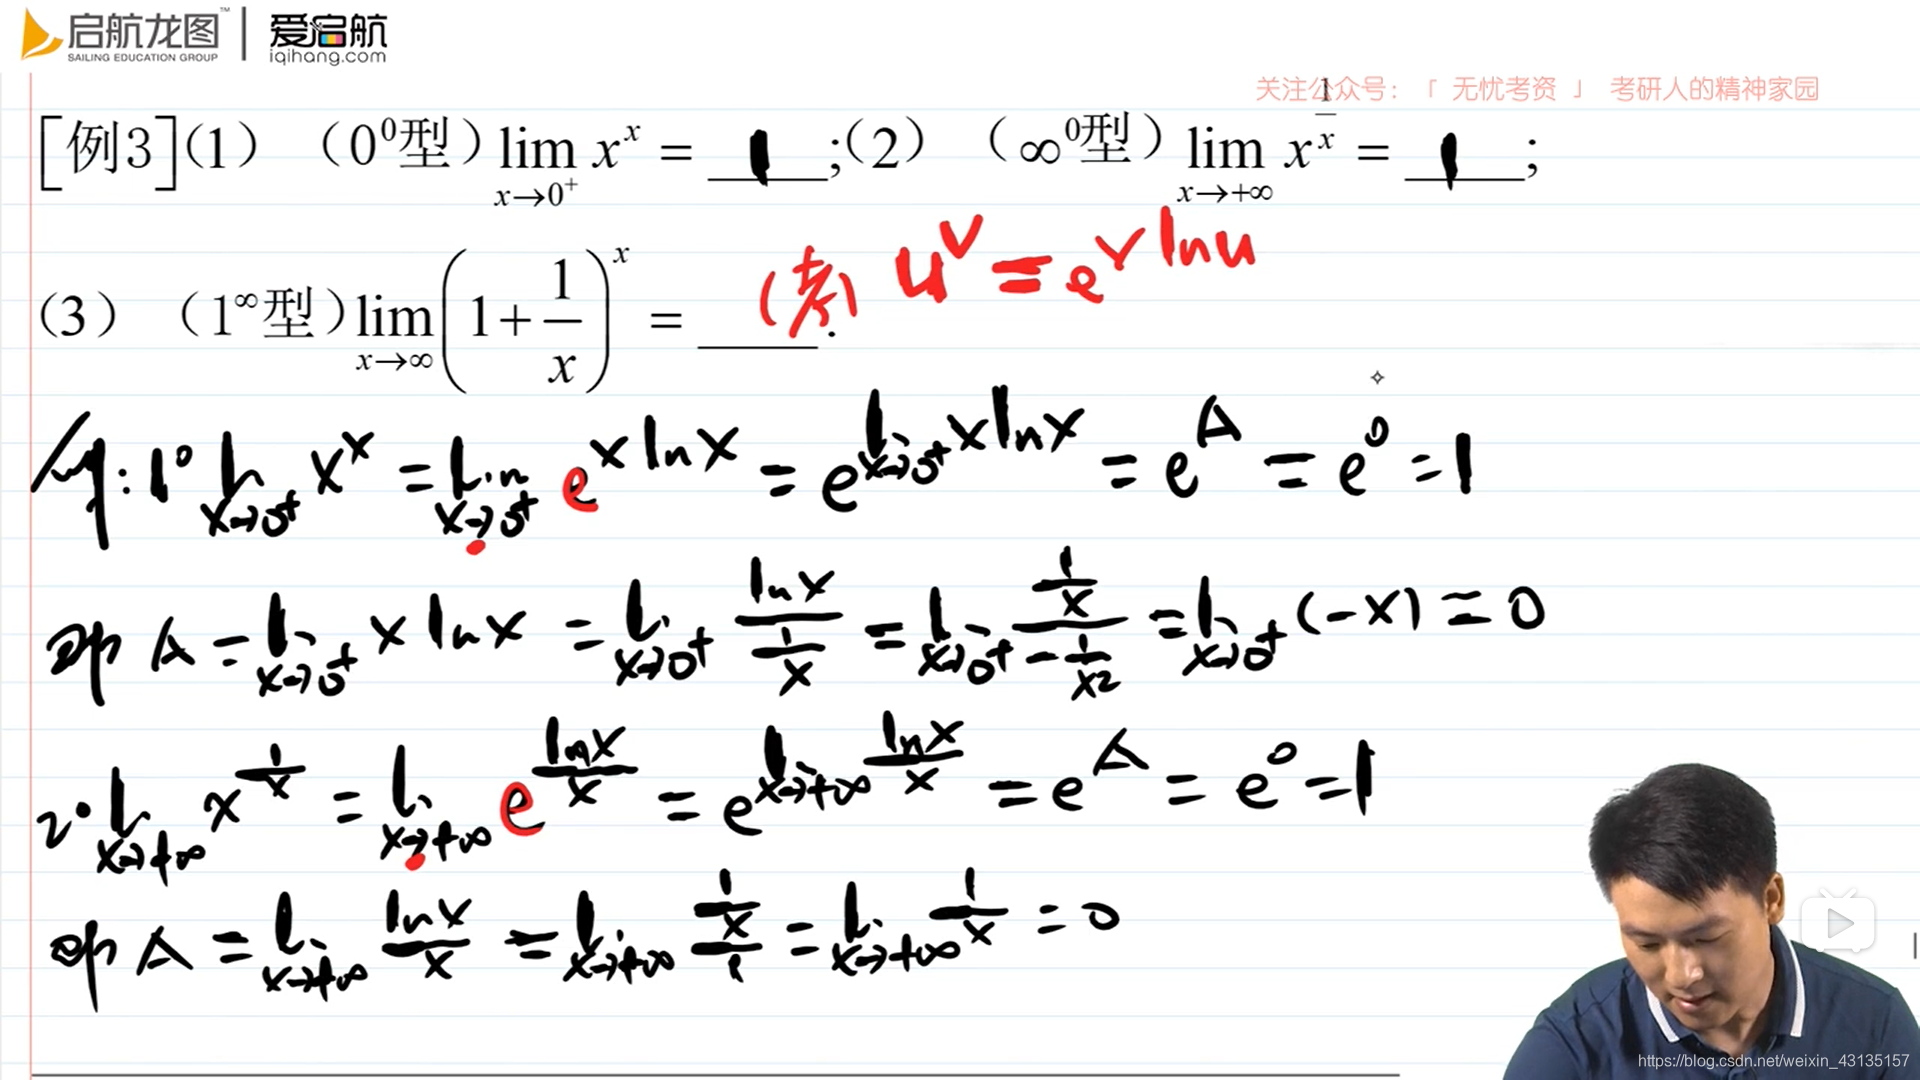 启航龙图™ | 爱启航
SAILING EDUCATION GROUP iqihang.com
关注公众号：「 无忧考资 」 考研人的精神家园
[例3](1) (0^0型) lim_{x→0^+} x^x = 1 ;(2) (∞^0型) lim_{x→+∞} x^{1/x} = 1 ;
(3) (1^∞型) lim_{x→∞} (1+1/x)^x = ____.
(考) u^v = e^{v ln u}
解: 1° lim_{x→0^+} x^x = lim_{x→0^+} e^{x ln x} = e^{lim_{x→0^+} x ln x} = e^A = e^0 = 1
其中 A = lim_{x→0^+} x ln x = lim_{x→0^+} ln x / (1/x) = lim_{x→0^+} (1/x) / (-1/x^2) = lim_{x→0^+} (-x) = 0
2° lim_{x→+∞} x^{1/x} = lim_{x→+∞} e^{ln x / x} = e^{lim_{x→+∞} ln x / x} = e^A = e^0 = 1
其中 A = lim_{x→+∞} ln x / x = lim_{x→+∞} (1/x) / 1 = lim_{x→+∞} 1/x = 0
https://blog.csdn.net/weixin_43135157